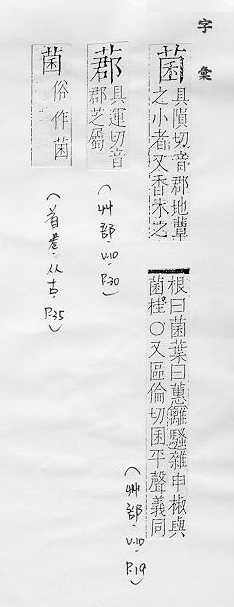 字彙
菌
具隕切音郡地蕈
之小者又香木之
根曰菌葉曰蕙離騷雜申椒與
菌桂〇又區倫切囷平聲義同
(艸部, v.10, P.19)
具運切音
郡芝
(艸部, v.10, P.20)
菌 俗作菌
(首卷, 从古, P.35)